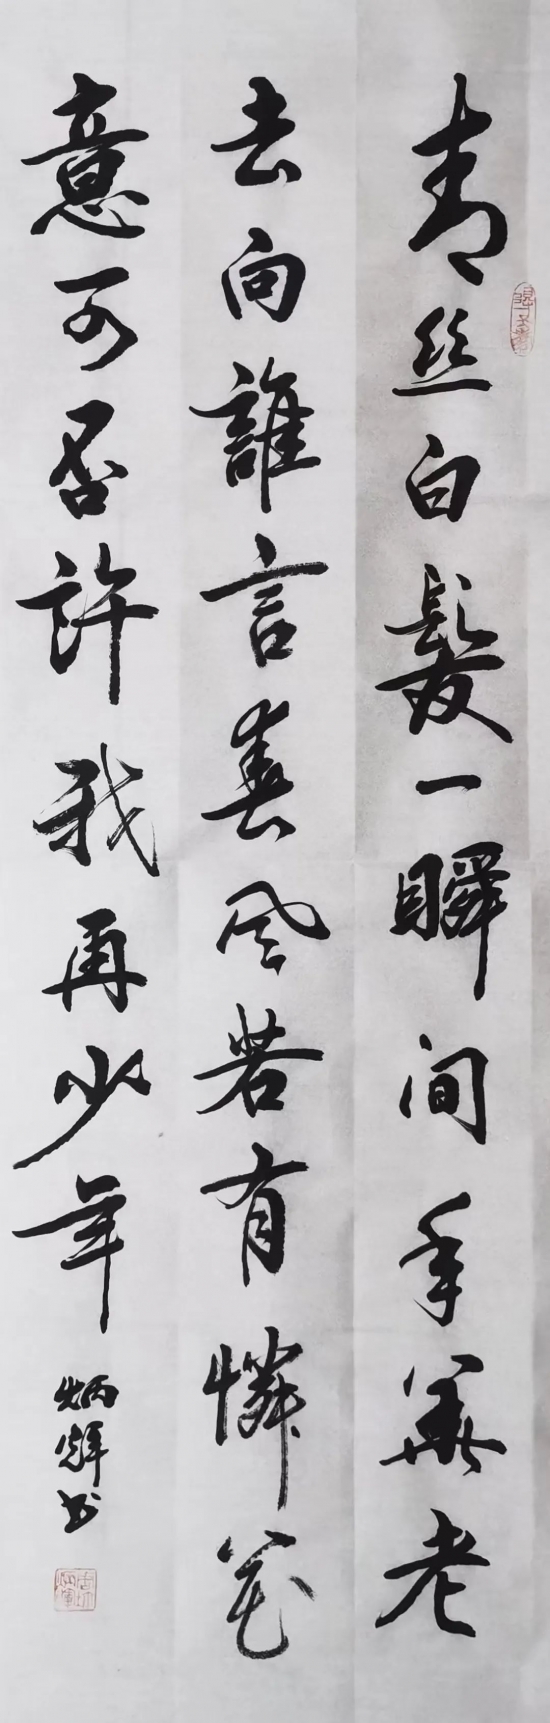 青丝白髮一瞬间年華老
去向誰言春风若有憐花
意可否許我再少年
炳輝书